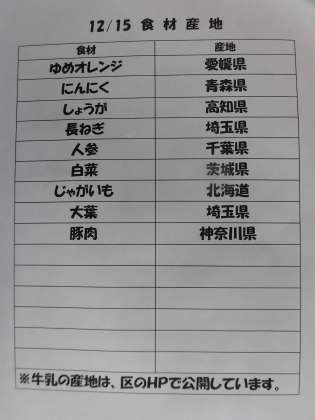 12/15 食材産地
食材 産地
ゆめオレンジ 愛媛県
にんにく 青森県
しょうが 高知県
長ねぎ 埼玉県
人参 千葉県
白菜 茨城県
じゃがいも 北海道
大葉 埼玉県
豚肉 神奈川県
※牛乳の産地は、区のHPで公開しています。